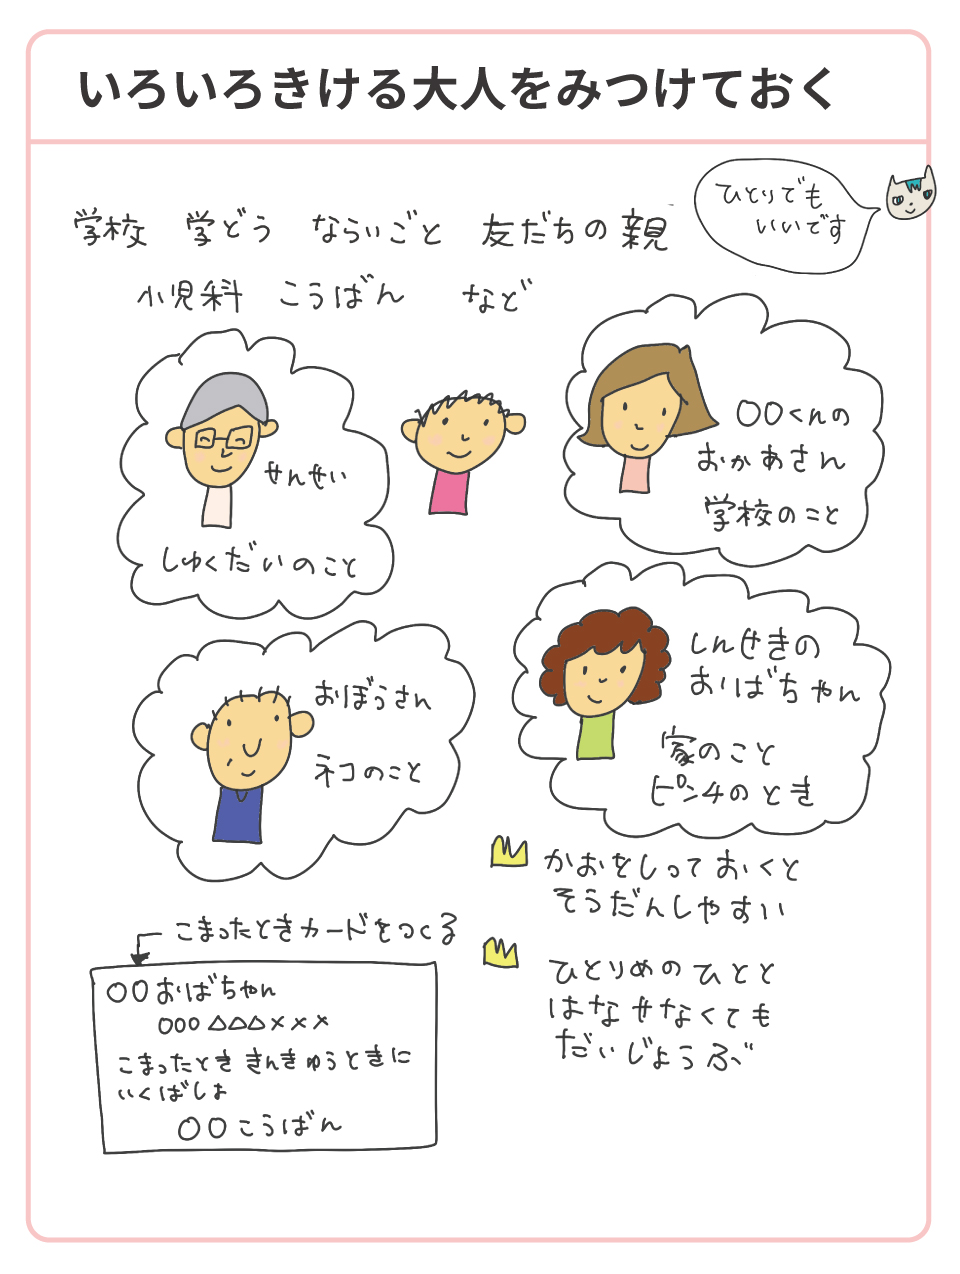 いろいろきける大人をみつけておく
ひとりでも
いいです
学校 学どう ならいごと 友だちの親
小児科 こうばん など
せんせい
しゅくだいのこと
〇〇くんの
おかあさん
学校のこと
おぼうさん
ネコのこと
しんせきの
おばちゃん
家のこと
ピンチのとき
かおをしっておくと
そうだんしやすい
ひとりめのひとと
はなせなくても
だいじょうぶ
こまったときカードをつくる
〇〇おばちゃん
〇〇〇△△△×××
こまったとき きんきゅうときに
いくばしょ
〇〇こうばん